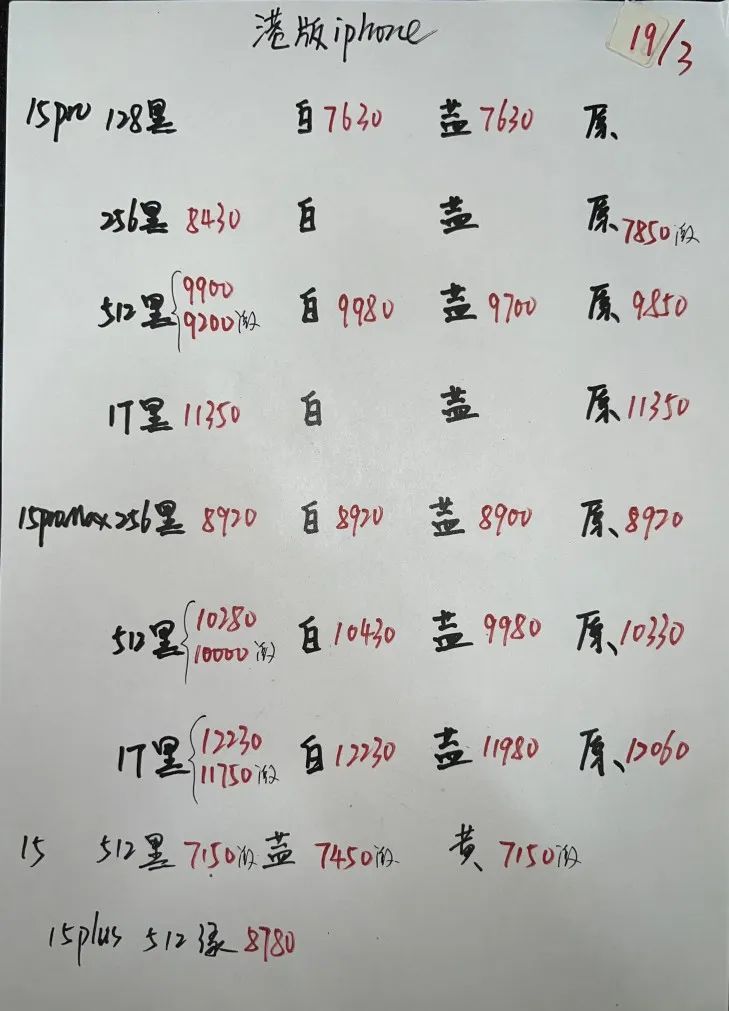 港版iphone 19/3
15pro 128黑 白7630 蓝7630 原
256黑 8430 白 蓝 原7850激
512黑 9900 白9980 蓝9700 原9850
9200激
1T黑 11350 白 蓝 原11350
15proMax 256黑 8920 白8920 蓝8900 原8920
512黑 10280 白10430 蓝9980 原10330
10000激
1T黑 12230 白12230 蓝11980 原12060
11750激
15 512黑 7150激 蓝 7450激 黄 7150激
15plus 512绿 8780